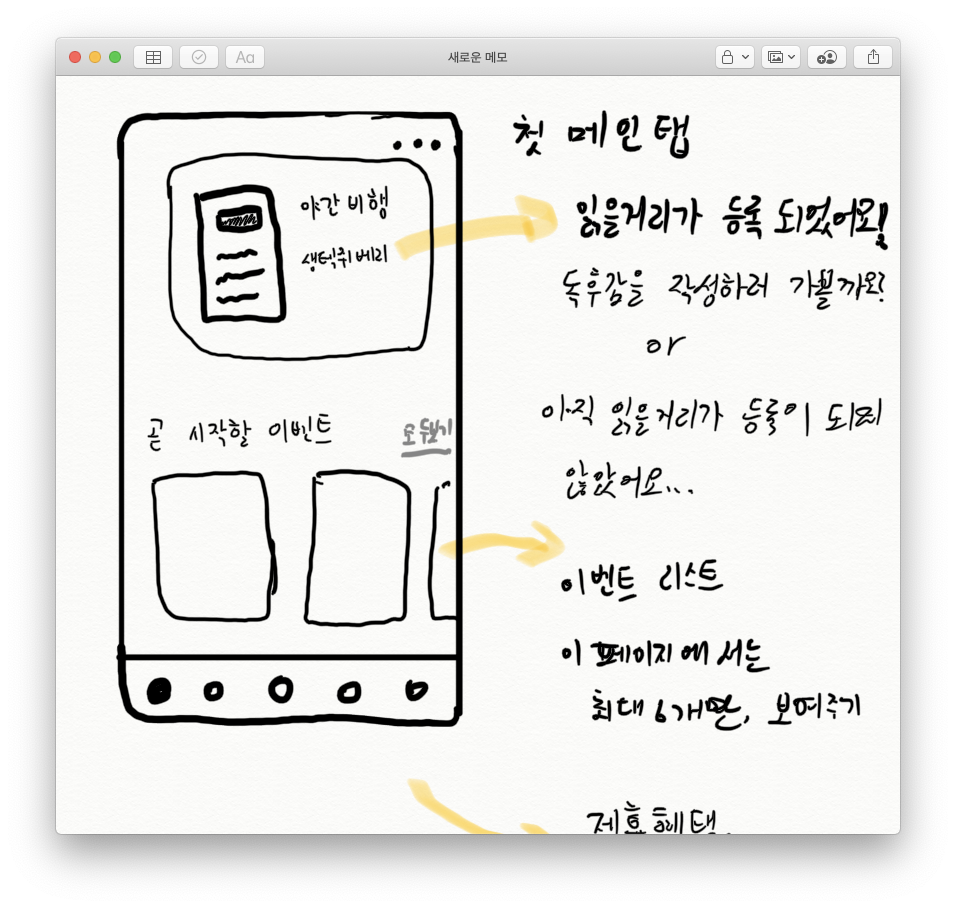 Aa
새로운 메모
첫 메인 탭
야간 비행
생텍쥐베리
읽을거리가 등록 되었어요!
독후감을 작성하러 가볼까요?
or
아직 읽을거리가 등록이 되지
않았어요...
곧 시작할 이벤트
모두보기
이벤트 리스트
이 페이지에서는
최대 6개만, 보여주기
제휴혜택